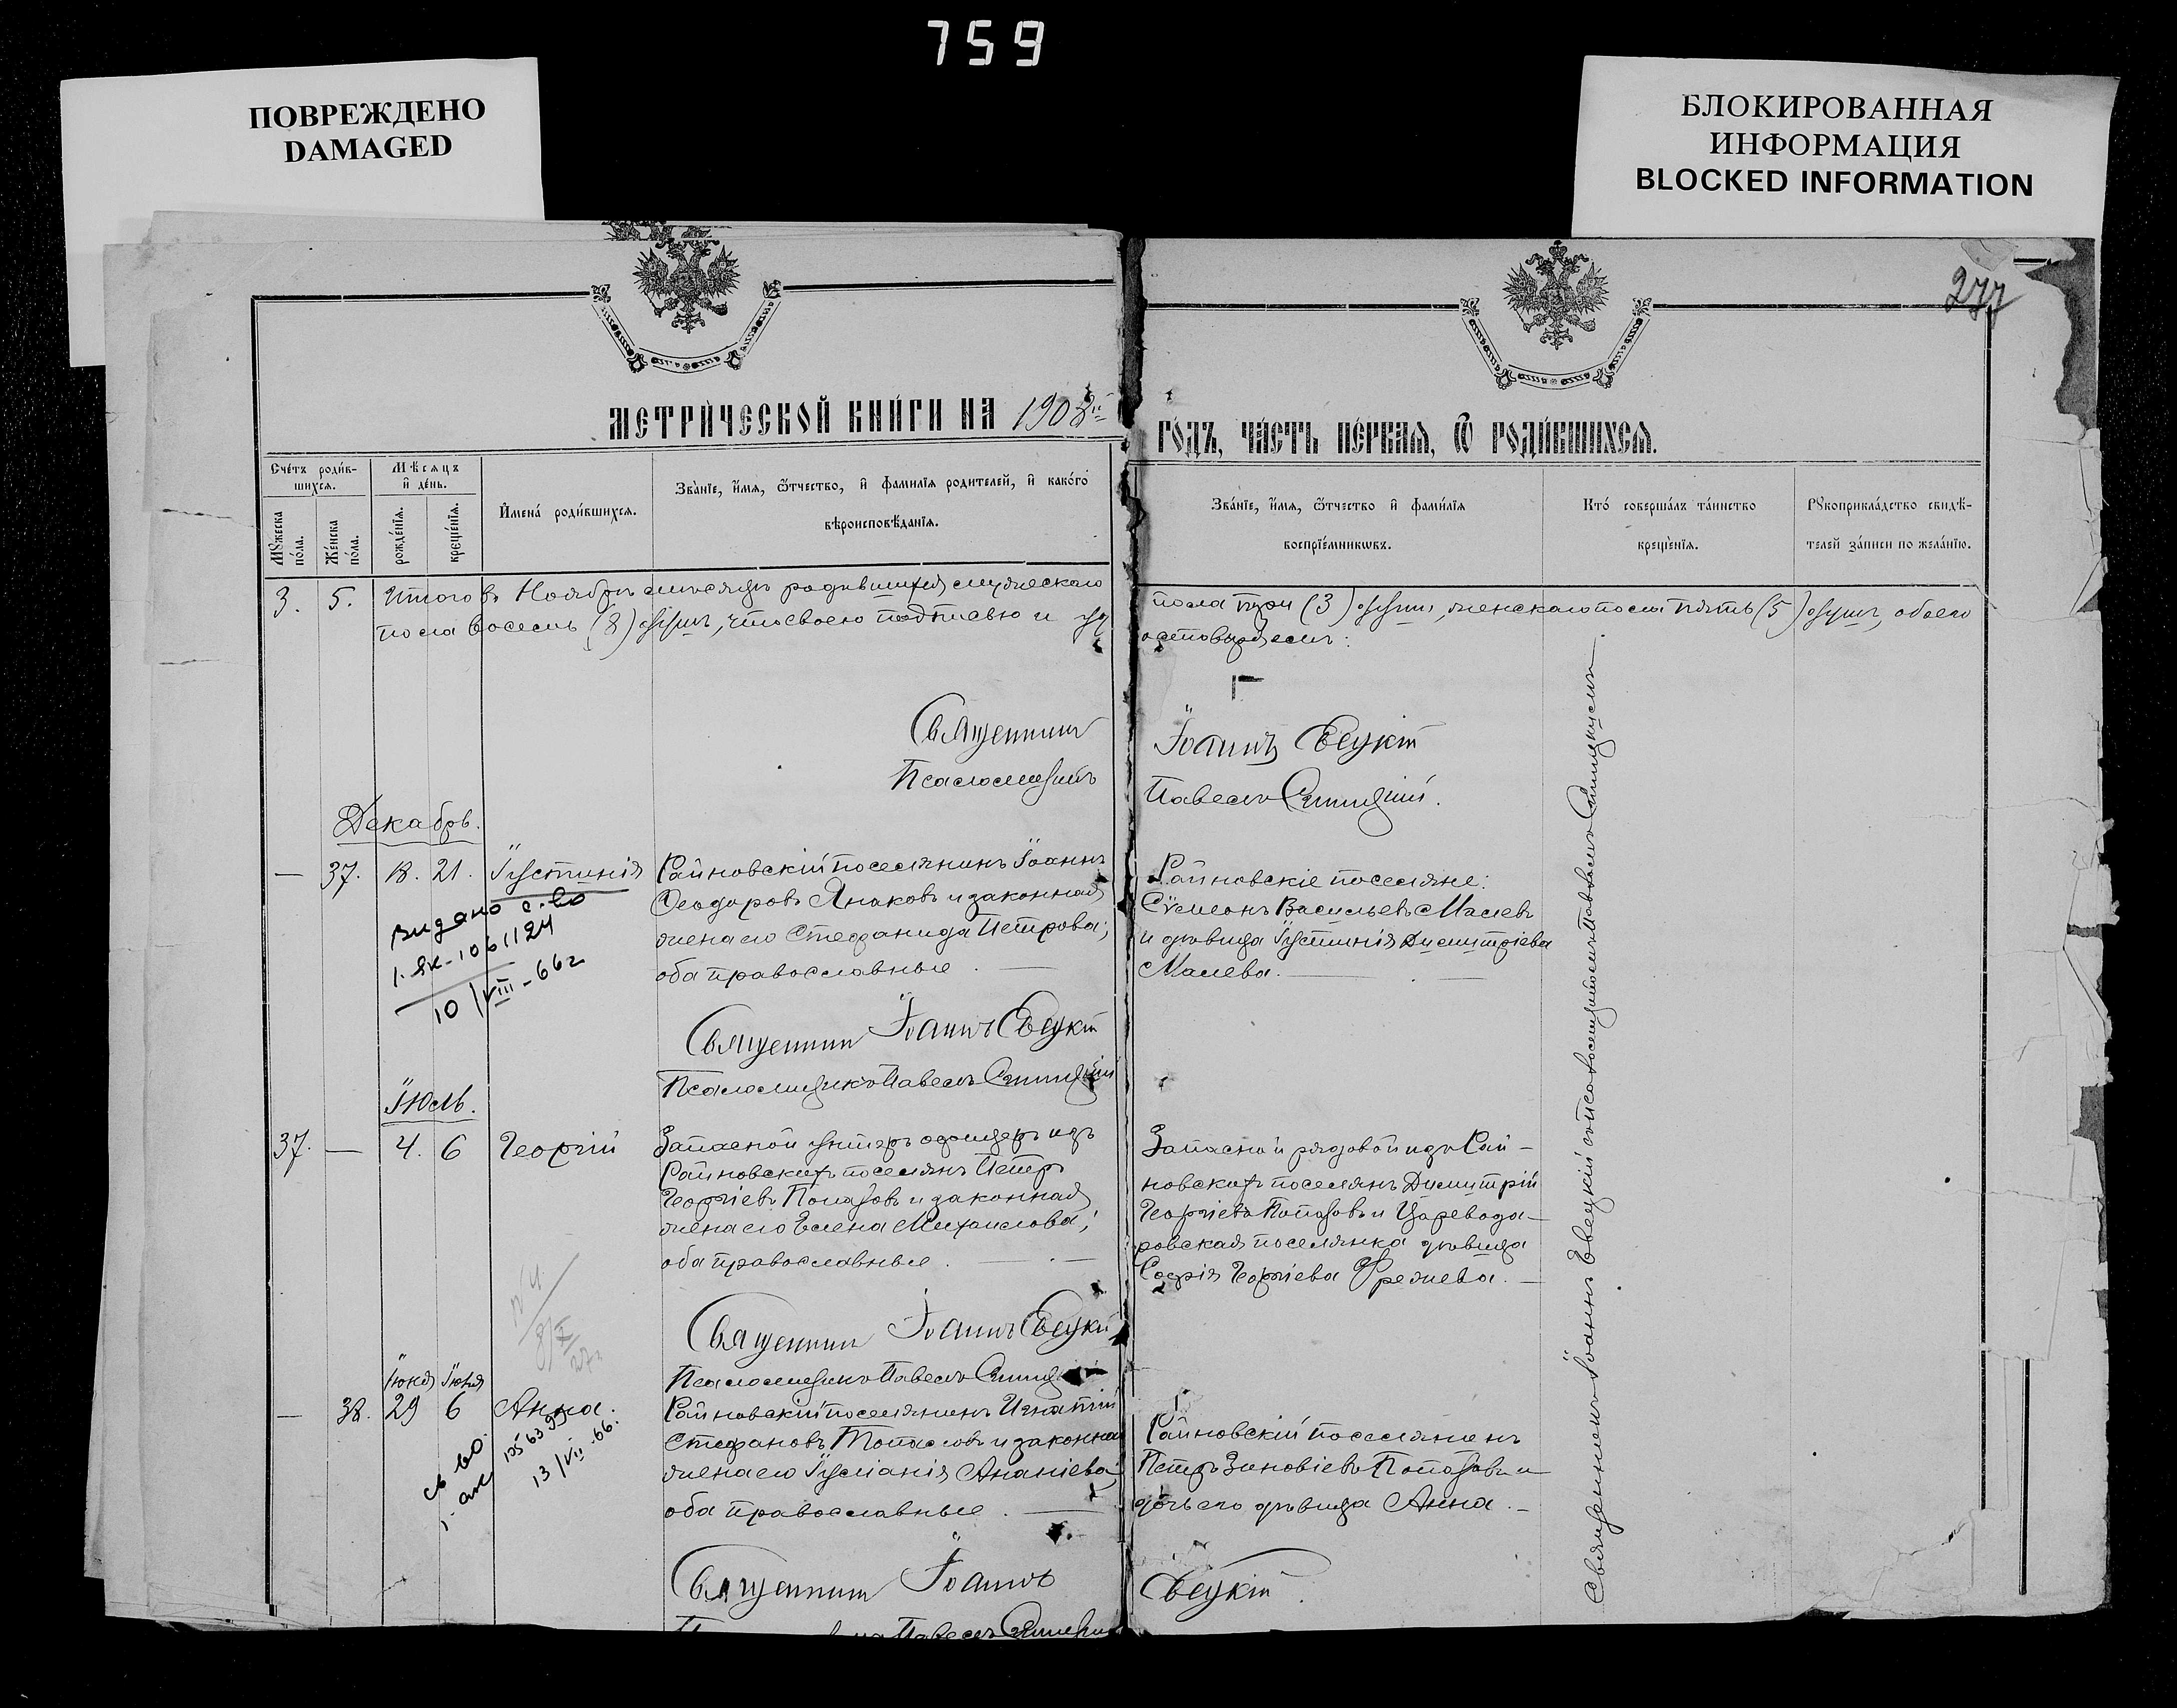 759
ПОВРЕЖДЕНО
DAMAGED
БЛОКИРОВАННАЯ
ИНФОРМАЦИЯ
BLOCKED INFORMATION
277
МЕТРИЧЕСКОЙ КНИГИ НА 1908й
ГОДЪ, ЧАСТЬ ПЕРВАЯ, Ѿ РОДИВШИХСЯ.
Счетъ родив-
шихся.
Мѣсяцъ
и день.
Мужеска
пола.
Женска
пола.
рожденія.
крещенія.
Имена родившихся.
Званіе, имя, ѿчество, и фамилія родителей, и какого
вѣроисповѣданія.
Званіе, имя, ѿчество и фамилія
воспріемниковъ.
Кто совершалъ таинство
крещенія.
Рукоприкладство свидѣ-
телей записи по желанію.
3. 5. Итого въ Ноябрѣ мѣсяцѣ родившихся мужескаго
пола три (3) души, женскаго пола пять (5) душъ, обоего
пола восемь (8) душъ, что своею подписью и удо
стовѣряемъ:
Священникъ Іоаннъ Евецкій
Псаломщикъ Павелъ Синицкій.
Декабрь.
— 37. 18. 21. Іустинія
Райновскій поселянинъ Іоаннъ
Ѳеодоровъ Янаковъ и законная
жена его Стефанида Петрова;
оба православные.
Райновскіе поселяне:
Сѵмеонъ Васильевъ Малевъ
и дѣвица Іустинія Димитріева
Малева.
видано с-во
1-ЯК-1061124
10/VIII-66г
Священникъ Іоаннъ Евецкій
Псаломщикъ Павелъ Синицкій
Іюль.
37. — 4. 6 Георгій
Запасной унтеръ офицеръ изъ
Райновскихъ поселянъ Петръ
Георгіевъ Попазовъ и законная
жена его Елена Михаилова;
оба православные.
Запасной рядовой изъ Рай-
новскихъ поселянъ Димитрій
Георгіевъ Попазовъ и Царевода-
ровская поселянка дѣвица
Софія Георгіева
Священникъ Іоаннъ Евецкій
Псаломщикъ Павелъ Синицкій
Іюня Іюля
— 38. 29 6 Анна.
Райновскій поселянинъ Игнатій
Стефановъ Топаловъ и законная
жена его Іуліанія Ананіева;
оба православные.
Райновскій поселянинъ
Петръ Зиновіевъ Попазовъ и
дочь его дѣвица Анна.
св-во
13/VII-66.
Священникъ Іоаннъ Евецкій.
Павелъ Синицкій
Священникомъ Іоанномъ Евецкій съ псаломщикомъ Павломъ Синицкимъ